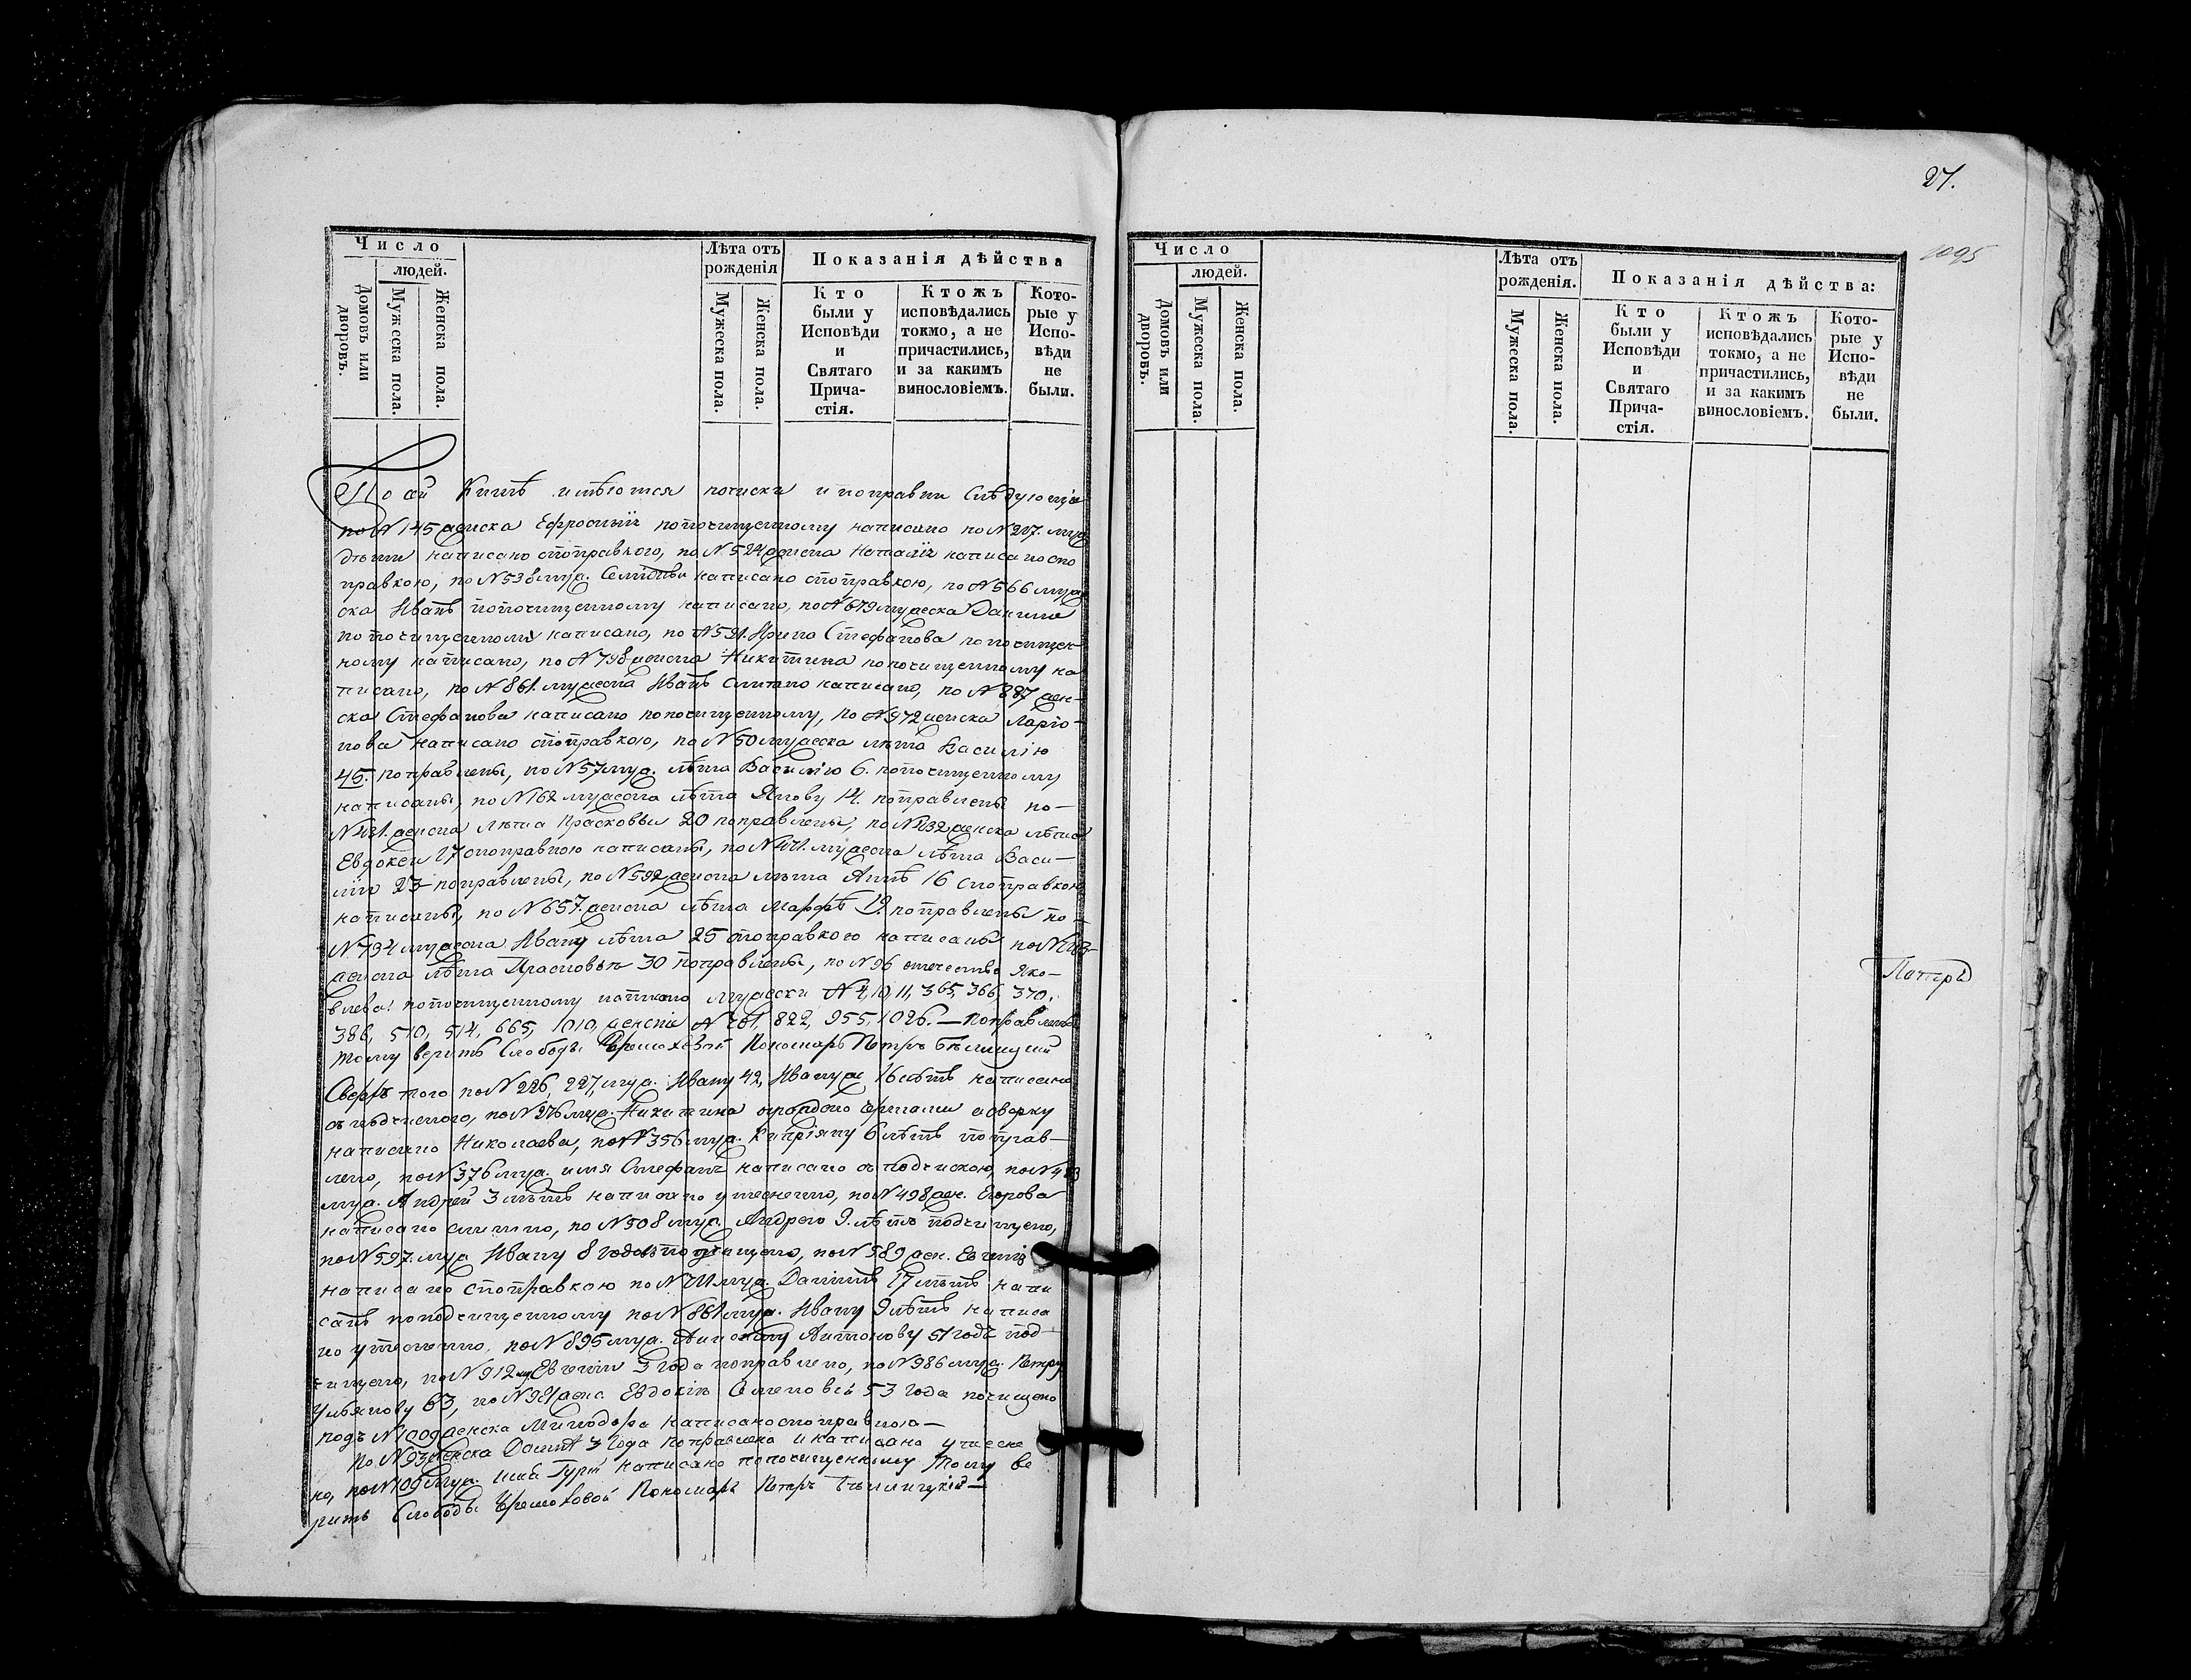 Число
людей.
Домовъ или дворовъ.
Мужеска пола.
Женска пола.
Лѣта отъ рожденія
Мужеска пола.
Женска пола.
Показанія дѣйства
Кто
были у
Исповѣди
и
Святаго
Прича-
стія.
Ктожъ
исповѣдались
токмо, а не
причастились,
и за какимъ
винословіемъ.
Кото-
рые у
Испо-
вѣди
не
были.
По сей Книгѣ имѣются почиски и поправки слѣдующія
по N 145 женска Ефросинія попочищенному написано по N 207.
написано споправкою, по N 524 женска Наталія написано спо
правкою, по N 538 муж. написано споправкою, по N 566 муже
ска Иванъ попочищенному написано, по N 679 мужеска Даниила
попочищенному написано, по N 591. Ирина Стефанова попочищен
ному написано, по N 798 женска Никитина попочищенному на
писано, по N 861. мужеска Иванъ написано, по N 887 жен-
ска Стефанова написано попочищенному, по N 972 женска Ларіо-
нова написано споправкою, по N 50 мужеска лѣта Василію
45. поправлены, по N 57 муж. лѣта Василію 6. попочищенному
написаны, по N 162 мужеска лѣта Якову 14. поправлены по-
женска лѣта Прасковьи 20 поправлены, по женска лѣта
Евдокеи 27 споправкою написаны, по мужеска лѣта Васи-
лію 23 поправлены, по N 592 женска лѣта Аннѣ 16 споправкою
написаны, по N 657. женска лѣта Марфѣ 19. поправлены по-
N 734 мужеска Ивану лѣта 25 споправкою написаны по
женска лѣта Прасковьѣ 30 поправлены, по N 96 отечество Яко-
влева попочищенному написано мужески N 4, 10, 11, 365, 366, 370,
386, 510, 514, 665, 1010, женскіе N 701, 822, 955, 1026. — поправлены
тому веритъ Слободы Пономарь Петръ
Сверхъ того по N 226, 227, муж. Ивану 42, Ивану ж 16 лѣтъ написано
по N 276 муж. Никитина
написано Николаева, по N 356 муж. Кипріяну 6 лѣтъ поправ-
лено, по N 376 муж. имя Стефанъ написано съ подчискою, по N 483
муж. Андрей 3 лѣтъ написано утесненно, по N 498 жен. Егорова
написано слитно, по N 508 муж. Андрею 9. лѣтъ подчищено,
по N 597. муж Ивану 8 годовъ подчищено, по N 589 жен. Евгенія
написано споправкою по муж. Даниилъ 17 лѣтъ напи
санъ поподчищенному по N 861 муж. Ивану 9 лѣтъ написа
но утесненно, по N 895 муж. Антонову 51 годъ под-
чищено, по N 912 Евгеніи 3 года поправлено, по N 986 муж. Петру
Ульянову 63, по N 981 женс. Евдокіи Семеновой 53 года почищено
подъ N 1009 женска Минодора написано споправкою —
по N 93 женска 3 года поправлено и написано утеснен
но, по N 109 муж. имя Гурій написано попочищенному Тому ве
ритъ Слободы Пономарь Петръ
27.
1095
Число
людей.
Домовъ или дворовъ.
Мужеска пола.
Женска пола.
Лѣта отъ рожденія.
Мужеска пола.
Женска пола.
Показанія дѣйства:
Кто
были у
Исповѣди
и
Святаго
Прича-
стія.
Ктожъ
исповѣдались
токмо, а не
причастились,
и за какимъ
винословіемъ.
Кото-
рые у
Испо-
вѣди
не
были.
Петръ